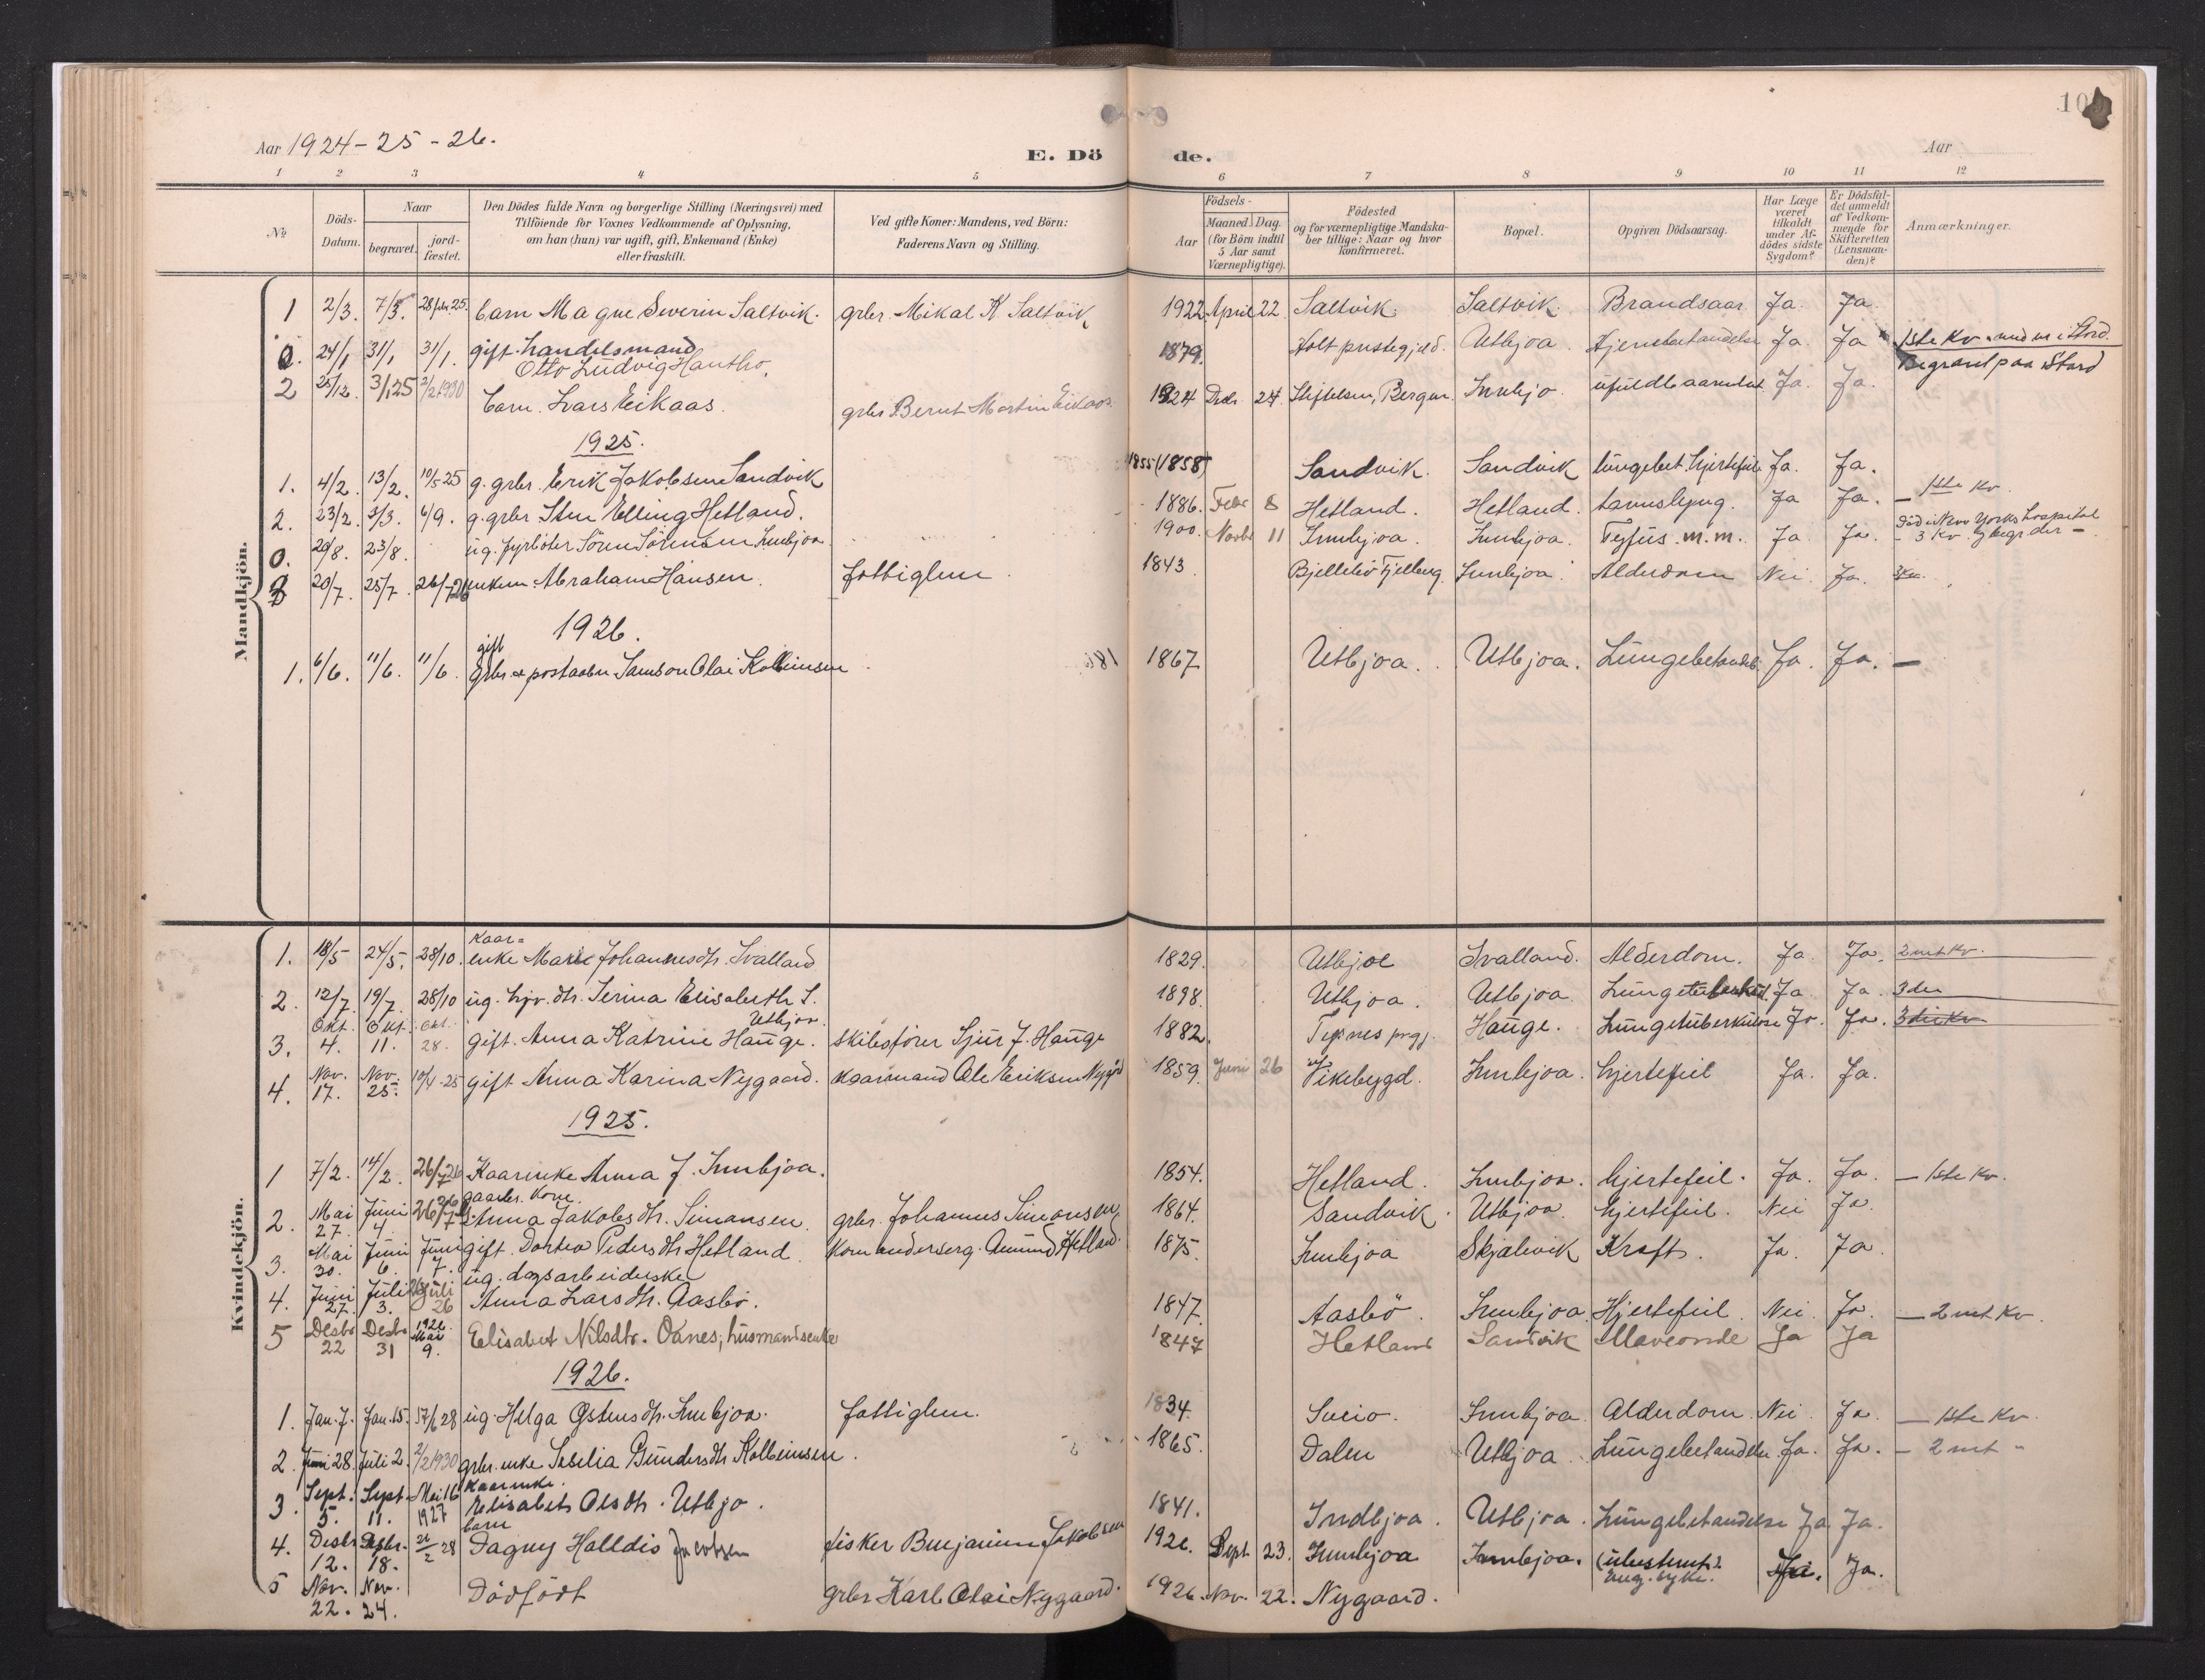 Aar 1924-25-26.
E. Dö de.
Aar
10
1 2 3 4 5 6 7 8 9 10 11 12
№
Döds-Datum.
Naar
begravet.
jord-fæstet.
Den Dödes fulde Navn og borgerlige Stilling (Næringsvei) med
Tilföiende for Voxnes Vedkommende af Oplysning,
om han (hun) var ugift, gift, Enkemand (Enke)
eller fraskilt.
Ved gifte Koner: Mandens, ved Börn:
Faderens Navn og Stilling.
Födsels-
Aar
Maaned. Dag.
(for Börn indtil
5 Aar samt
Værnepligtige).
Födested
og for værnepligtige Mandska-
ber tillige: Naar og hvor
Konfirmeret.
Bopæl.
Opgiven Dödsaarsag.
Har Læge
været
tilkaldt
under Af-
dödes sidste
Sygdom?
Er Dödsfal-
det anmeldt
af Vedkom-
mende for
Skifteretten
(Lensman-
den)?
Anmærkninger.
Mandkjön.
1 2/3. 7/3. 28 25. barn Magne Severin Saltvik. grbr. Mikal K. Saltvik 1922 April 22 Saltvik. Saltvik. Brandsaar Ja. Ja.
0. 24/1 31/1 31/1. gift. handelsmand Otto Ludvig 1879. Holt prestegjeld. Utbjoa. Hjernebetændelse Ja. Ja 1ste Kv. Stord.
Begravet paa Stord
2 25/12. 3/1 25 2/2 1930 barn. Lars Eikaas. grbr Bernt Martin Eikaas. 1924 Decbr. 24 Stiftelsen, Bergen. Innbjo. Ja. Ja.
1925.
1. 4/2. 13/2. 10/5 25 g. grbr. Erik Jakobsen Sandvik 1855 (1858) Sandvik. Sandvik lungebet. hjertefeil Ja. Ja.
2. 23/2. 3/3. 6/9. g. grbr Sten Elling Hetland. 1886. Febr 8 Hetland. Hetland. tarmslyng. Ja Ja. — 1ste Kv.
0. 20/8. 23/8. ug. fyrböter Sören Sörensen Innbjoa 1900. Novbr 11 Innbjoa. Innbjoa. Tyfus m.m. Ja Ja. Död i New Yorks hospital
- 3 Kv. begr der -
3 20/7. 25/7. 26/7 26 enkem. Abraham Hansen. fattiglem. 1843. Fjelberg. Innbjoa. Alderdom Nei. Ja.
1926.
1. 6/6. 11/6. 11/6. gift
grbr & postaabn Samson Olai Kolbeinsen 1867 Utbjoa. Utbjoa. Lungebetændels. Ja. Ja. —
Kvindekjön.
1. 18/5 24/5. 28/10. Kaar=
enke Marie Johannesdtr. Svalland 1829. Utbjoe Svalland. Alderdom. Ja. Ja. 2net Kv.
2. 12/7. 19/7. 28/10 ug. hjv. dtr. Serina Elisabeth S. Utbjoa. 1898. Utbjoa. Utbjoa. Lungetuberkul. Ja. Ja. 3die
3. Okt. 4. Okt. 11. Okt. 28. gift. Anna Katrine Hauge. skibsförer Sjur J. Hauge 1882. Tysnes prgj. Hauge. Lungetuberkulose Ja. Ja. 3die Kv
4. Nov. 17. Nov. 25. 10/4-25 gift Anna Karina Nygaard. kaarmand Ole Eriksen Nygård 1859. Juni 26 Vikebygd. Innbjoa. hjertefeil Ja. Ja.
1925.
1 7/2. 14/2. 26/7 26 Kaarenke Anna J. Innbjoa. 1854. Hetland. Innbjoa. hjertefeil. Ja. Ja. — 1ste Kv.
2. Mai 27. Juni 4. 26/7 26 gaardbr. kone.
Anna Jakobsdtr. Simonsen. grbr. Johannes Simonsen 1864. Sandvik. Utbjoa. hjertefeil. Nei Ja.
3. Mai 30. Juni 6. Juni 7. gift. Dortea Pedersdtr Hetland. Komandersrg. Amund Hetland. 1875. Innbjoa Skjalevik Kraft. Ja. Ja.
4. Juni 27. Juli 3. Juli 26 ug. dagsarbeiderske
Anna Larsdtr. Aasbö. 1847. Aasbö. Innbjoa Hjertefeil. Nei Ja. — 2net Kv.
5 Desbr 22 Desbr 31 1926 Mai 9. Elisabet Nilsdtr. Oknes, husmandsenke 1847 Hetland Sandvik Maveonde Ja Ja
1926.
1. Jan. 7. Jan. 15. 17/6 28 ug. Helga Östensdtr. Innbjoa. fattiglem. 1834. Sveio. Innbjoa. Alderdom. Nei. Ja. — 1ste Kv.
2. Juni 28. Juli 2. 2/2 1930 grbr. enke Seselia Gundersdtr Kolbeinsen. 1865. Dalen Utbjoa. Lungebetændelse. Ja. Ja. — 2net "
3. Sept. 5. Sept. 11. Mai 16 1927 Kaarenke.
Elisabet Olsdtr. Utbjo. 1841. Indbjoa. Utbjoa. Lungebetændelse Ja Ja.
4. Desbr 12. Desbr. 18. 21/2 28 barn
Dagny Halldis Jacobsen fisker Benjamin Jakobsen 1926. Sept. 23. Innbjoa Innbjoa. (ubestemt) Ja. Ja.
5 Nov. 22. Nov. 24. Dödfödt grbr Karl Olai Nygaard. 1926. Nov. 22. Nygaard.